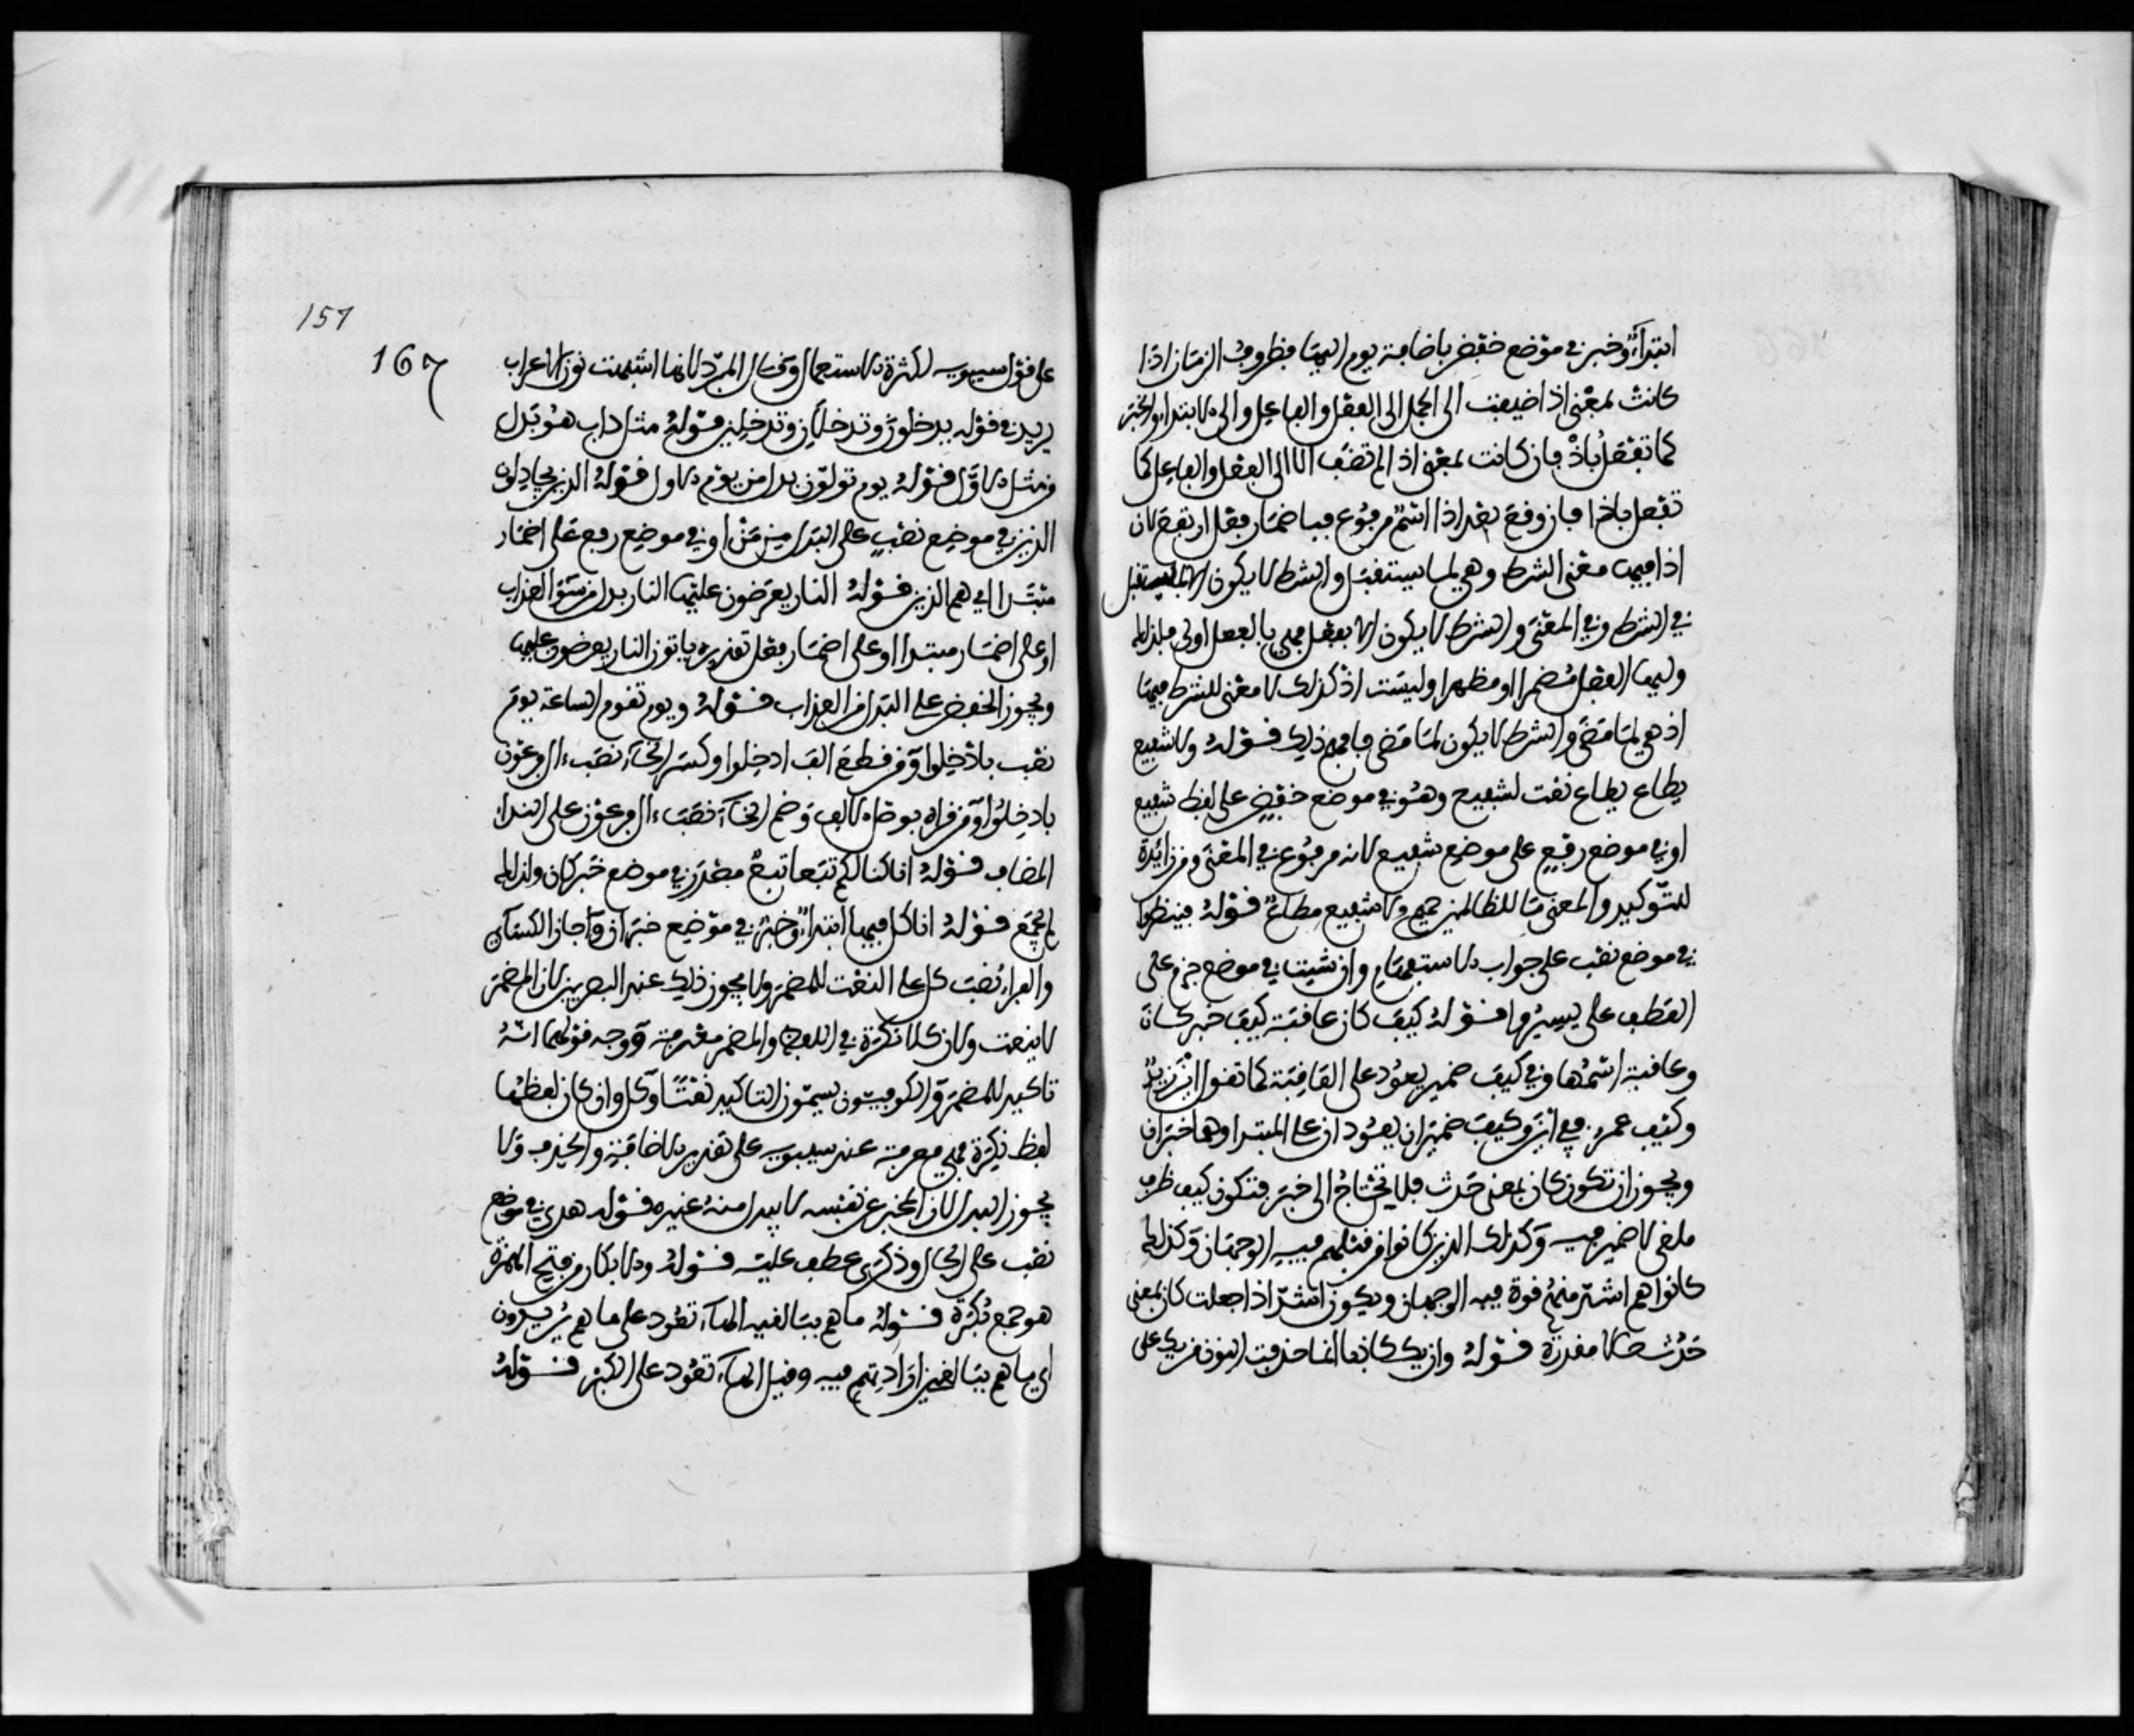 ابتداء وخبر في موضع خفض باضافة يوم اليها فظروف الزمان اذا
كانت بمعنى اذ اضيفت الى الجمل الى الفعل والفاعل والى الابتداء والخبر
كما تفعل باذ فان كانت بمعنى اذا لم تضف الا الى الفعل والفاعل كما
تفعل باذا فان وقع بعد اذا اسم مرفوع فباضمار فعل ارتفع لان
اذا فيها معنى الشرط وهي لما يستقبل والشرط لا يكون الا لمستقبل
في الشرط وفي المعنى والشرط لا يكون الا بفعل فهي بالفعل اولى فلذلك
وليها الفعل مضمرا او مظهرا وليست اذ كذلك لا معنى للشرط فيها
اذ هي لما مضى والشرط لا يكون لما مضى فافهم ذلك قوله ولا شفيع
يطاع يطاع نعت لشفيع وهو في موضع خفض على لفظ شفيع
او في موضع رفع على موضع شفيع لانه مرفوع في المعنى ومن زائدة
للتوكيد والمعنى ما للظالمين حميم ولا شفيع مطاع قوله فينظروا
في موضع نصب على جواب الاستفهام وان شيت في موضع جزم على
العطف على يسيروا قوله كيف كان عاقبة كيف خبر كان
وعاقبة اسمها وفي كيف ضمير يعود على العاقبة كما تقول اين زيد
وكيف عمرو ففي اين وكيف ضميران يعودان على المبتدا وهما خبران
ويجوز ان تكون كان بمعنى حدث فلا يحتاج الى خبر فتكون كيف ظرف
ملغى لا ضمير فيه وكذلك الذين كانوا من قبلهم فيه الوجهان وكذلك
كانوا هم اشد منهم قوة فيه الوجهان ويكون اشد اذا جعلت كان بمعنى
حدث حالا مقدرة قوله وان يك كاذبا انما حذفت النون من يك على
157
167
على قول سيبويه لكثرة الاستعمال وقال المبرد لانها اشبهت نون الاعراب
يريد في قوله يدخلون وتدخلان وتدخلين قوله مثل داب هو بدل
من مثل الاول قوله يوم تولون بدل من يوم الاول قوله الذين يجادلون
الذين في موضع نصب على البدل من من او في موضع رفع على اضمار
مبتدا اي هم الذين قوله النار يعرضون عليها النار بدل من سوء العذاب
او على اضمار مبتدا او على اضمار فعل تقديره ياتون النار يعرضون عليها
ويجوز الخفض على البدل من العذاب قوله ويوم تقوم الساعة يوم
نصب بادخلوا ومن قطع الف ادخلوا وكسر الخاء نصب ءال فرعون
بادخلوا ومن قراه بوصل الالف وضم الخاء نصب ءال فرعون على النداء
المضاف قوله انا كنا لكم تبعا تبع مصدر في موضع خبر كان ولذلك
لم يجمع قوله انا كل فيها ابتداء وخبر في موضع خبر ان واجاز الكساي
والفراء نصب كل على النعت للمضمر ولا يجوز ذلك عند البصريين لان المضمر
لا ينعت ولان كلا نكرة في اللفظ والمضمر معرفة ووجه قولهما انه
تاكيد للمضمر والكوفيون يسمون التاكيد نعتا وكل وان كان لفظها
لفظ نكرة فهي معرفة عند سيبويه على تقدير الاضافة والحذف ولا
يجوز البدل لان المخبر عن نفسه لا يبدل منه غيره قوله هدى في موضع
نصب على الحال وذكرى عطف عليه قوله والابكار من فتح الهمزة
هو جمع بكرة قوله ما هم ببالغيه الهاء تعود على ما هم يريدون
اي ما هم ببالغين ارادتهم فيه وقيل الهاء تعود على الكبر قوله